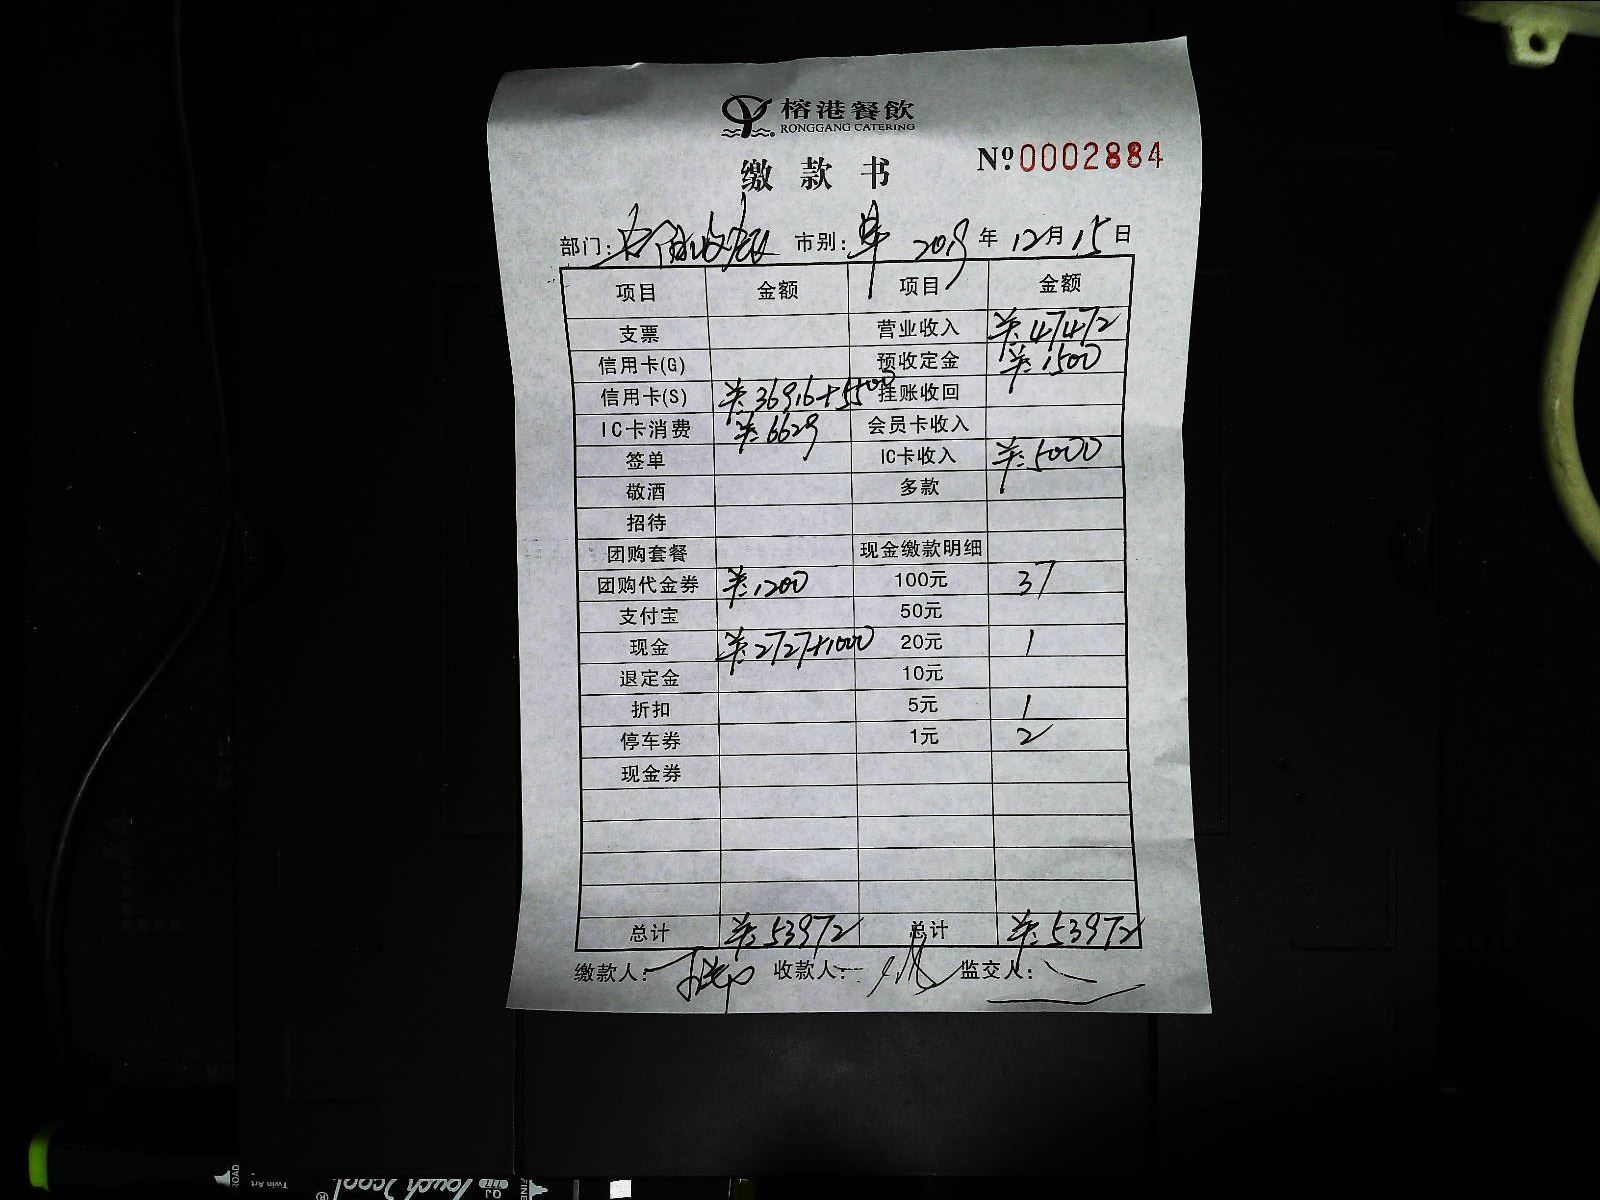 榕港餐飲
RONGGANG CATERING
缴款书 №0002884
部门: 市别: 2019年12月15日
项目 金额 项目 金额
支票 营业收入 ¥:47472
信用卡(G) 预收定金 ¥:1500
信用卡(S) ¥:36916+5500 挂账收回
IC卡消费 ¥:6629 会员卡收入
签单 IC卡收入 ¥:5000
敬酒 多款
招待
团购套餐 现金缴款明细
团购代金券 ¥:1200 100元 37
支付宝 50元
现金 ¥:2727+1000 20元 1
退定金 10元
折扣 5元 1
停车券 1元 2
现金券
总计 ¥:53972 总计 ¥:53972
缴款人: 收款人: 监交人:
ROAD
Twin Art
Touch 2cool
FINE